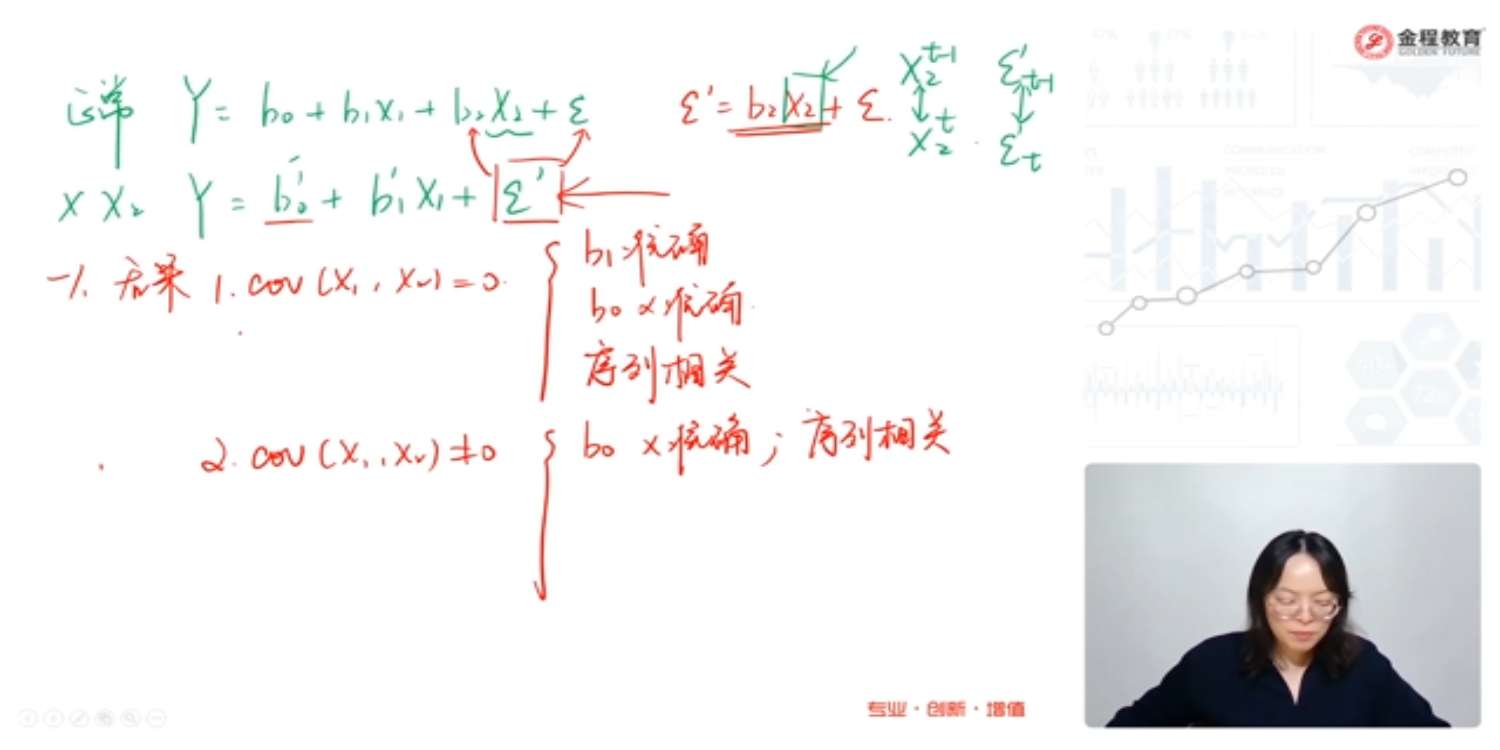 正常 Y = b₀ + b₁x₁ + b₂x₂ + ε ε' = b₂x₂ + ε. x₂ᵗ⁻¹ ε'ₜ₋₁
x₂ᵗ ε'ₜ
× x₂ Y = b₀' + b₁'x₁ + ε'
1. cov(x₁, x₂) = 0.
b₁准确
b₀ × 准确
序列相关
2. cov(x₁, x₂) ≠ 0 b₀ × 准确; 序列相关
金程教育
GOLDEN FUTURE
专业·创新·增值